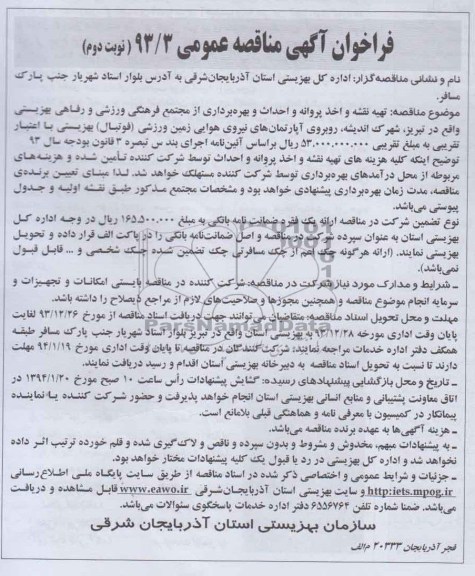 فراخوان آگهی مناقصه عمومی ۹۳/۳ ( نوبت دوم)
نام و نشانی مناقصه‌گزار: اداره کل بهزیستی استان آذربایجان‌شرقی به آدرس بلوار استاد شهریار جنب پارک
مسافر.
موضوع مناقصه: تهیه نقشه و اخذ پروانه و احداث و بهره‌برداری از مجتمع فرهنگی ورزشی و رفاهی بهزیستی
واقع در تبریز، شهرک اندیشه، روبروی آپارتمان‌های نیروی هوایی زمین ورزشی (فوتبال) بهزیستی با اعتبار
تقریبی به مبلغ تقریبی ۵۳،۰۰۰،۰۰۰،۰۰۰ ریال براساس آئین‌نامه اجرای بند س تبصره ۳ قانون بودجه سال ۹۳
توضیح اینکه کلیه هزینه های تهیه نقشه و اخذ پروانه و احداث توسط شرکت کننده تأمین شده و هزینه‌های
مربوطه از محل درآمدهای بهره‌برداری توسط شرکت کننده مستهلک خواهد شد. لذا مبنای تعیین برنده‌ی
مناقصه، مدت زمان بهره‌برداری پیشنهادی خواهد بود و مشخصات مجتمع مذکور طبق نقشه اولیه و جدول
پیوستی می‌باشد.
نوع تضمین شرکت در مناقصه ارائه یک فقره ضمانت نامه بانکی به مبلغ ۱۶۵،۵۰۰،۰۰۰ ریال در وجه اداره کل
بهزیستی استان به عنوان سپرده شرکت در مناقصه و اصل ضمانت‌نامه بانکی را در پاکت الف قرار داده و تحویل
بهزیستی نمایند. (ارائه هرگونه چک اعم از چک مسافرتی چک تضمین شده چک شخصی و .. قابل قبول
نمی‌باشد).
ـ شرایط و مدارک مورد نیاز شرکت در مناقصه: شرکت کننده در مناقصه بایستی امکانات و تجهیزات و
سرمایه انجام موضوع مناقصه و همچنین مجوزها و صلاحیت‌های لازم از مراجع ذیصلاح را داشته باشد.
مهلت و محل تحویل اسناد مناقصه: متقاضیان می‌توانند جهت دریافت اسناد مناقصه از مورخ ۹۳/۱۲/۲۶ لغایت
پایان وقت اداری مورخه ۹۳/۱۲/۲۸ به بهزیستی استان واقع در تبریز بلوار استاد شهریار جنب پارک مسافر طبقه
همکف دفتر اداره خدمات مراجعه نمایند: شرکت‌کنندگان در مناقصه تا پایان وقت اداری مورخ ۹۴/۱/۱۹ مهلت
دارند تا نسبت به تحویل اسناد مناقصه به دبیرخانه بهزیستی استان اقدام و رسید دریافت نمایند.
ـ تاریخ و محل بازگشایی پیشنهادهای رسیده: گشایش پیشنهادات رأس ساعت ۱۰ صبح مورخ ۱۳۹۴/۱/۲۰ در
اتاق معاونت پشتیبانی و منابع انسانی بهزیستی استان انجام خواهد پذیرفت و حضور شرکت کننده یا نماینده
پیمانکار در کمیسیون با معرفی نامه و هماهنگی قبلی بلامانع است.
ـ هزینه آگهی‌ها به عهده برنده مناقصه می‌باشد.
ـ به پیشنهادات مبهم، مخدوش و مشروط و بدون سپرده و ناقص و لاک گیری شده و قلم خورده ترتیب اثر داده
نخواهد شد و اداره کل بهزیستی در رد یا قبول یک کلیه پیشنهادات مختار خواهد بود.
ـ جزئیات و شرایط عمومی و اختصاصی ذکر شده در اسناد مناقصه از طریق سایت پایگاه ملی اطلاع‌رسانی
http:iets.mpog.ir و سایت بهزیستی استان آذربایجان‌شرقی www.eawo.ir قابل مشاهده و دریافت
می‌باشد. ضمنا شماره تلفن ۶۵۵۶۷۶۴ دفتر اداره خدمات پاسخگوی سئوالات می‌باشد.
سازمان بهزیستی استان آذربایجان شرقی
فجر آذربایجان ۲۰۳۳۳ م/الف
ParsNamadData